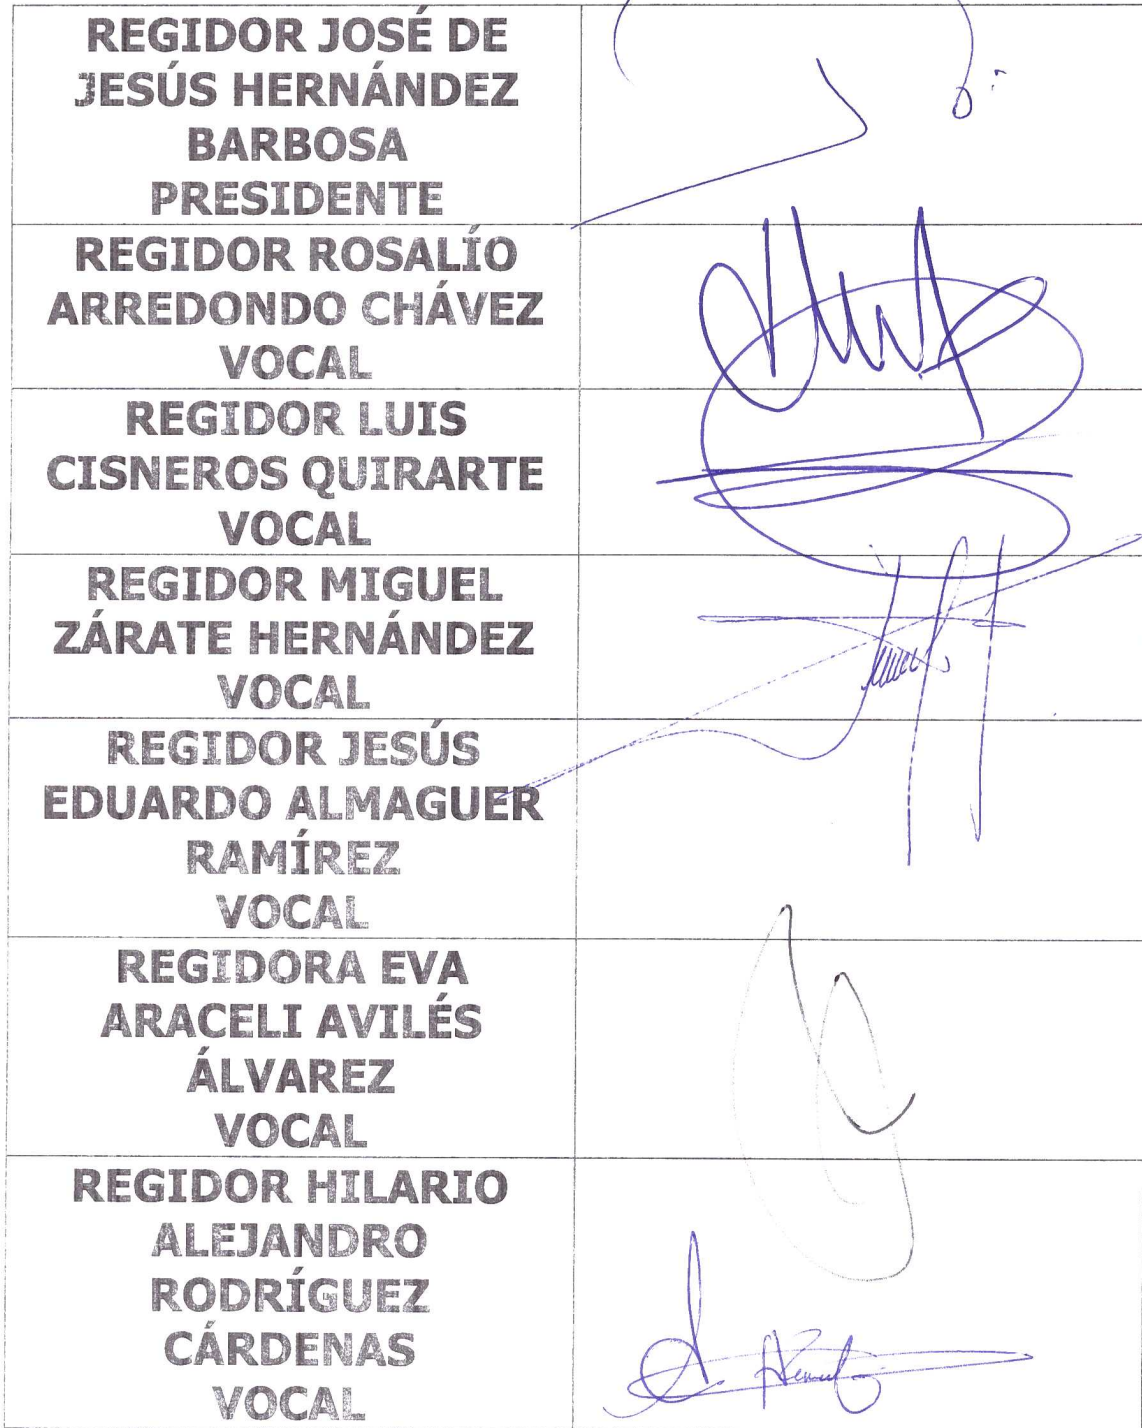 REGIDOR JOSÉ DE
JESÚS HERNÁNDEZ
BARBOSA
PRESIDENTE
REGIDOR ROSALÍO
ARREDONDO CHÁVEZ
VOCAL
REGIDOR LUIS
CISNEROS QUIRARTE
VOCAL
REGIDOR MIGUEL
ZÁRATE HERNÁNDEZ
VOCAL
REGIDOR JESÚS
EDUARDO ALMAGUER
RAMÍREZ
VOCAL
REGIDORA EVA
ARACELI AVILÉS
ÁLVAREZ
VOCAL
REGIDOR HILARIO
ALEJANDRO
RODRÍGUEZ
CÁRDENAS
VOCAL